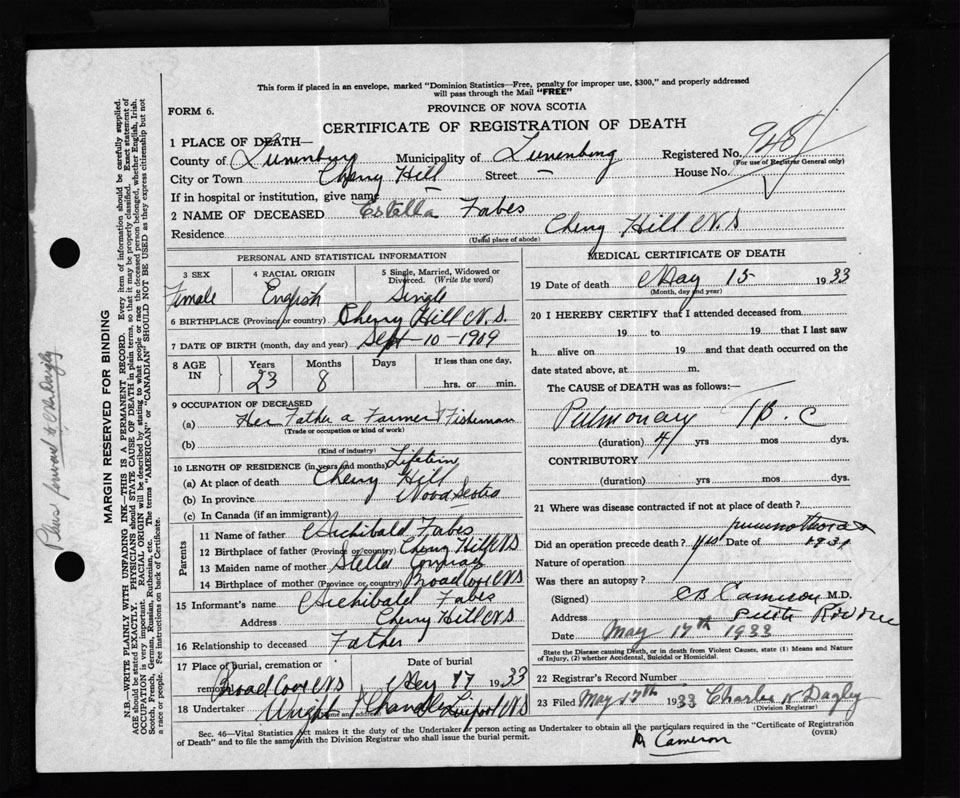 This form if placed in an envelope, marked "Dominion Statistics—Free, penalty for improper use, $300," and properly addressed
will pass through the Mail "FREE"
FORM 6.
PROVINCE OF NOVA SCOTIA
CERTIFICATE OF REGISTRATION OF DEATH
1 PLACE OF DEATH—
County of Lunenburg Municipality of Lunenburg Registered No. 948
(For use of Registrar General only)
City or Town Cherry Hill Street — House No.
If in hospital or institution, give name
2 NAME OF DECEASED Estella Fabes
Residence Cherry Hill N.S
(Usual place of abode)
PERSONAL AND STATISTICAL INFORMATION
3 SEX Female
4 RACIAL ORIGIN English
5 Single, Married, Widowed or Divorced. (Write the word) Single
6 BIRTHPLACE (Province or country) Cherry Hill N.S.
7 DATE OF BIRTH (month, day and year) Sept 10 - 1909
8 AGE IN Years 23 Months 8 Days If less than one day, hrs. or min.
9 OCCUPATION OF DECEASED
(a) Her Father a Farmer & Fisherman
(Trade or occupation or kind of work)
(b)
(Kind of industry)
10 LENGTH OF RESIDENCE (in years and months)
(a) At place of death Cherry Hill
(b) In province Nova Scotia
(c) In Canada (if an immigrant)
Parents
11 Name of father Archibald Fabes
12 Birthplace of father (Province or country) Cherry Hill N S
13 Maiden name of mother Stella Conrad
14 Birthplace of mother (Province or country) Broad Cove N S
15 Informant's name Archibald Fabes
Address Cherry Hill N S
16 Relationship to deceased Father
17 Place of burial, cremation or removal Broad Cove N S
Date of burial May 17 1933
18 Undertaker Wright & Chandler Liverpool N S
Name and address
MEDICAL CERTIFICATE OF DEATH
19 Date of death May 15 1933
(Month, day and year)
20 I HEREBY CERTIFY that I attended deceased from
19 to 19 that I last saw
h alive on 19 and that death occurred on the
date stated above, at m.
The CAUSE of DEATH was as follows:—
Pulmonary T.B.C
(duration) 4 yrs mos dys.
CONTRIBUTORY
(duration) yrs mos dys.
21 Where was disease contracted if not at place of death?
Did an operation precede death? yes Date of 1931
Nature of operation
Was there an autopsy?
(Signed) C B Cameron M.D.
Address Petite Riviere
Date May 17th 1933
State the Disease causing Death, or in death from Violent Causes, state (1) Means and Nature of Injury, (2) whether Accidental, Suicidal or Homicidal.
22 Registrar's Record Number
23 Filed May 17th 1933 Charles N Dagley
(Division Registrar)
Sec. 46—Vital Statistics Act makes it the duty of the Undertaker or person acting as Undertaker to obtain all the particulars required in the "Certificate of Registration
of Death" and to file the same with the Division Registrar who shall issue the burial permit.
(OVER)
Cameron
MARGIN RESERVED FOR BINDING
N.B.—WRITE PLAINLY WITH UNFADING INK—THIS IS A PERMANENT RECORD. Every item of information should be carefully supplied.
AGE should be stated EXACTLY. PHYSICIANS should STATE CAUSE OF DEATH in plain terms, so that it may be properly classified. Exact statement of
OCCUPATION is very important. RACIAL ORIGIN will be described by stating to what people or race the deceased person belonged, whether English, Irish,
Scotch, French, German, Russian, Ruthenian, etc. The terms "AMERICAN" or "CANADIAN" SHOULD NOT BE USED as they express citizenship but not
a race or people. Fee instructions on back of Certificate.